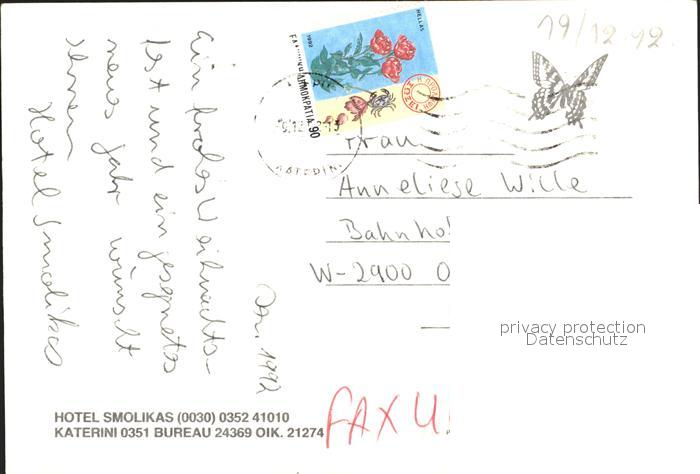 19/12.92.
HELLAS
1992
ΔΗΜΟΚΡΑΤΙΑ 90
Dez. 1992
Ein frohes Weihnachts-
fest und ein gesegnetes
neues Jahr wünscht
Ihnen
Hotel Smolikas
Frau
Anneliese Wille
Bahnho
W-2900 O
privacy protection
Datenschutz
FAX U.
HOTEL SMOLIKAS (0030) 0352 41010
KATERINI 0351 BUREAU 24369 OIK. 21274